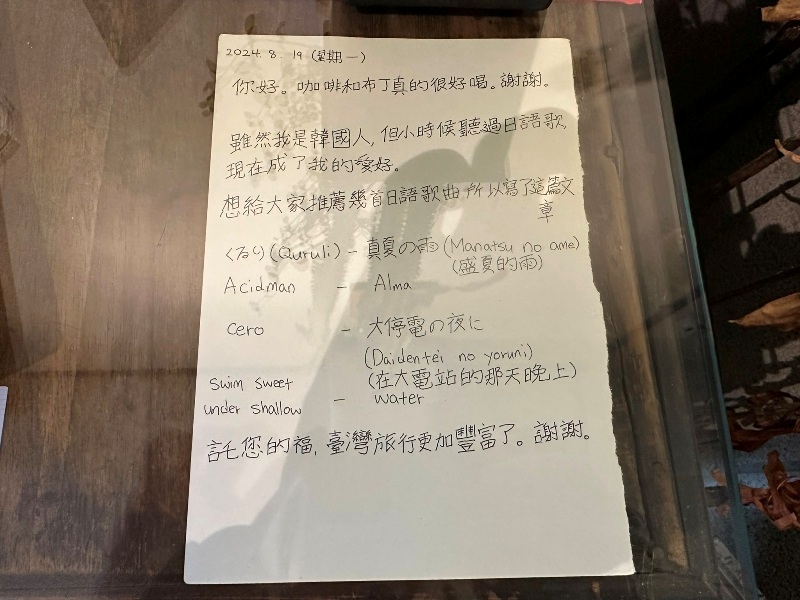 2024. 8. 19 (星期一)
你好。咖啡和布丁真的很好喝。謝謝。
雖然我是韓國人, 但小時候聽過日語歌,
現在成了我的愛好。
想給大家推薦幾首日語歌曲 所以寫了這篇文
章
くるり (Quruli) - 真夏の雨 (Manatsu no ame)
(盛夏的雨)
Acidman - Alma
Cero - 大停電の夜に
(Daidentei no yoruni)
(在大電站的那天晚上)
Swim sweet
under shallow - water
託您的福, 臺灣旅行更加豐富了。謝謝。